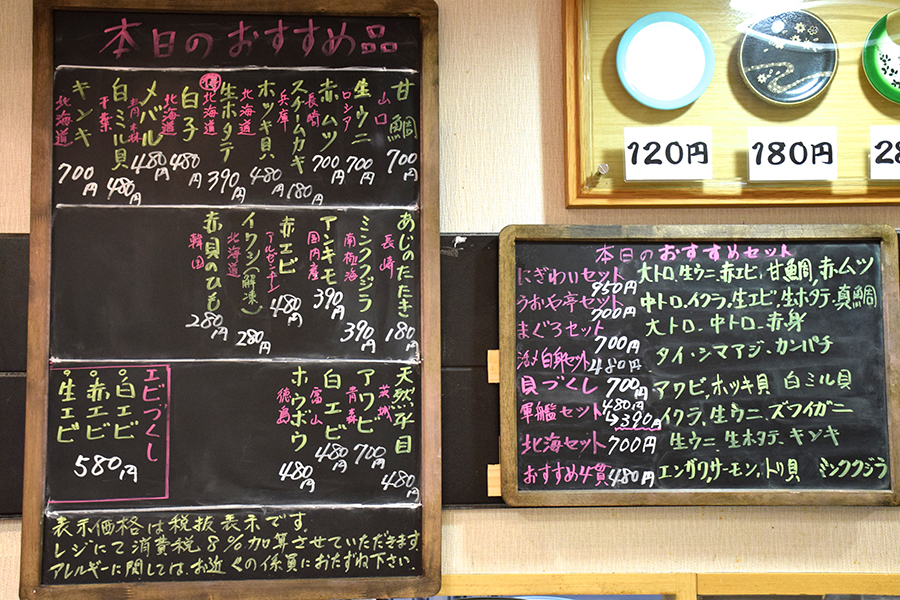 本日のおすすめ品
甘鯛
山口
700円
生ウニ
ロシア
700円
赤ムツ
長崎
700円
スチームカキ
兵庫
180円
ホッキ貝
北海道
480円
生ホタテ
北海道
390円
白子
北海道
480円
メバル
青森
480円
白ミル貝
千葉
480円
キンキ
北海道
700円
あじのたたき
長崎
180円
ミンククジラ
南極海
390円
アンキモ
国内産
390円
赤エビ
アルゼンチン
480円
イワシ(解凍)
北海道
280円
赤貝のひも
韓国
280円
天然平目
茨城
480円
アワビ
青森
700円
白エビ
富山
480円
ホウボウ
徳島
480円
エビづくし
白エビ
赤エビ
生エビ
580円
表示価格は税抜表示です。
レジにて消費税8%加算させていただきます
アレルギーに関しては、お近くの係員におたずね下さい。
120円
180円
28
本日のおすすめセット
にぎわいセット 950円 大トロ、生ウニ、赤エビ、甘鯛、赤ムツ
うおや亭セット 700円 中トロ、イクラ、生エビ、生ホタテ、真鯛
まぐろセット 700円 大トロ、中トロ、赤身
活〆白身セット 480円 タイ・シマアジ・カンパチ
貝づくし 700円 アワビ、ホッキ貝 白ミル貝
軍艦セット 480円→390円 イクラ、生ウニ、ズワイガニ
北海セット 700円 生ウニ、生ホタテ、キンキ
おすすめ4貫 480円 エンガワ、サーモン、トリ貝 ミンククジラ